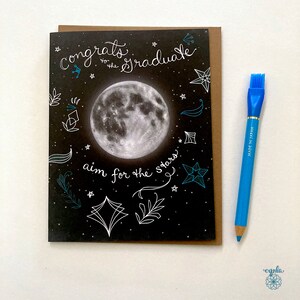 Congrats
to the Graduate
aim for the stars